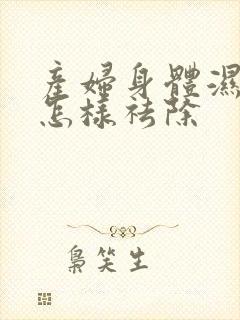 產婦身體濕
怎樣祛除
梟笑生